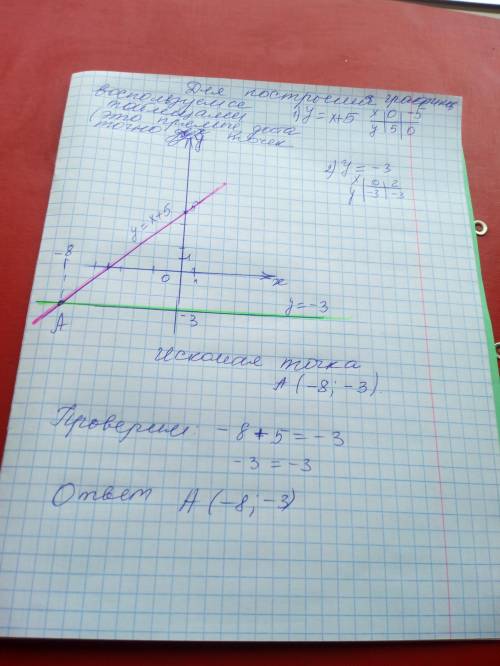 Для построения графиков
воспользуемся
таблицами
(это прямые, доста
точно двух точек
1) y = x+5
x 0 -5
y 5 0
2) y = -3
x 0 2
y -3 -3
y
5
y = x+5
-8
1
0
1
x
A
-3
y = -3
Искомая точка
A (-8; -3)
Проверим: -8+5 = -3
-3 = -3
Ответ A (-8; -3)